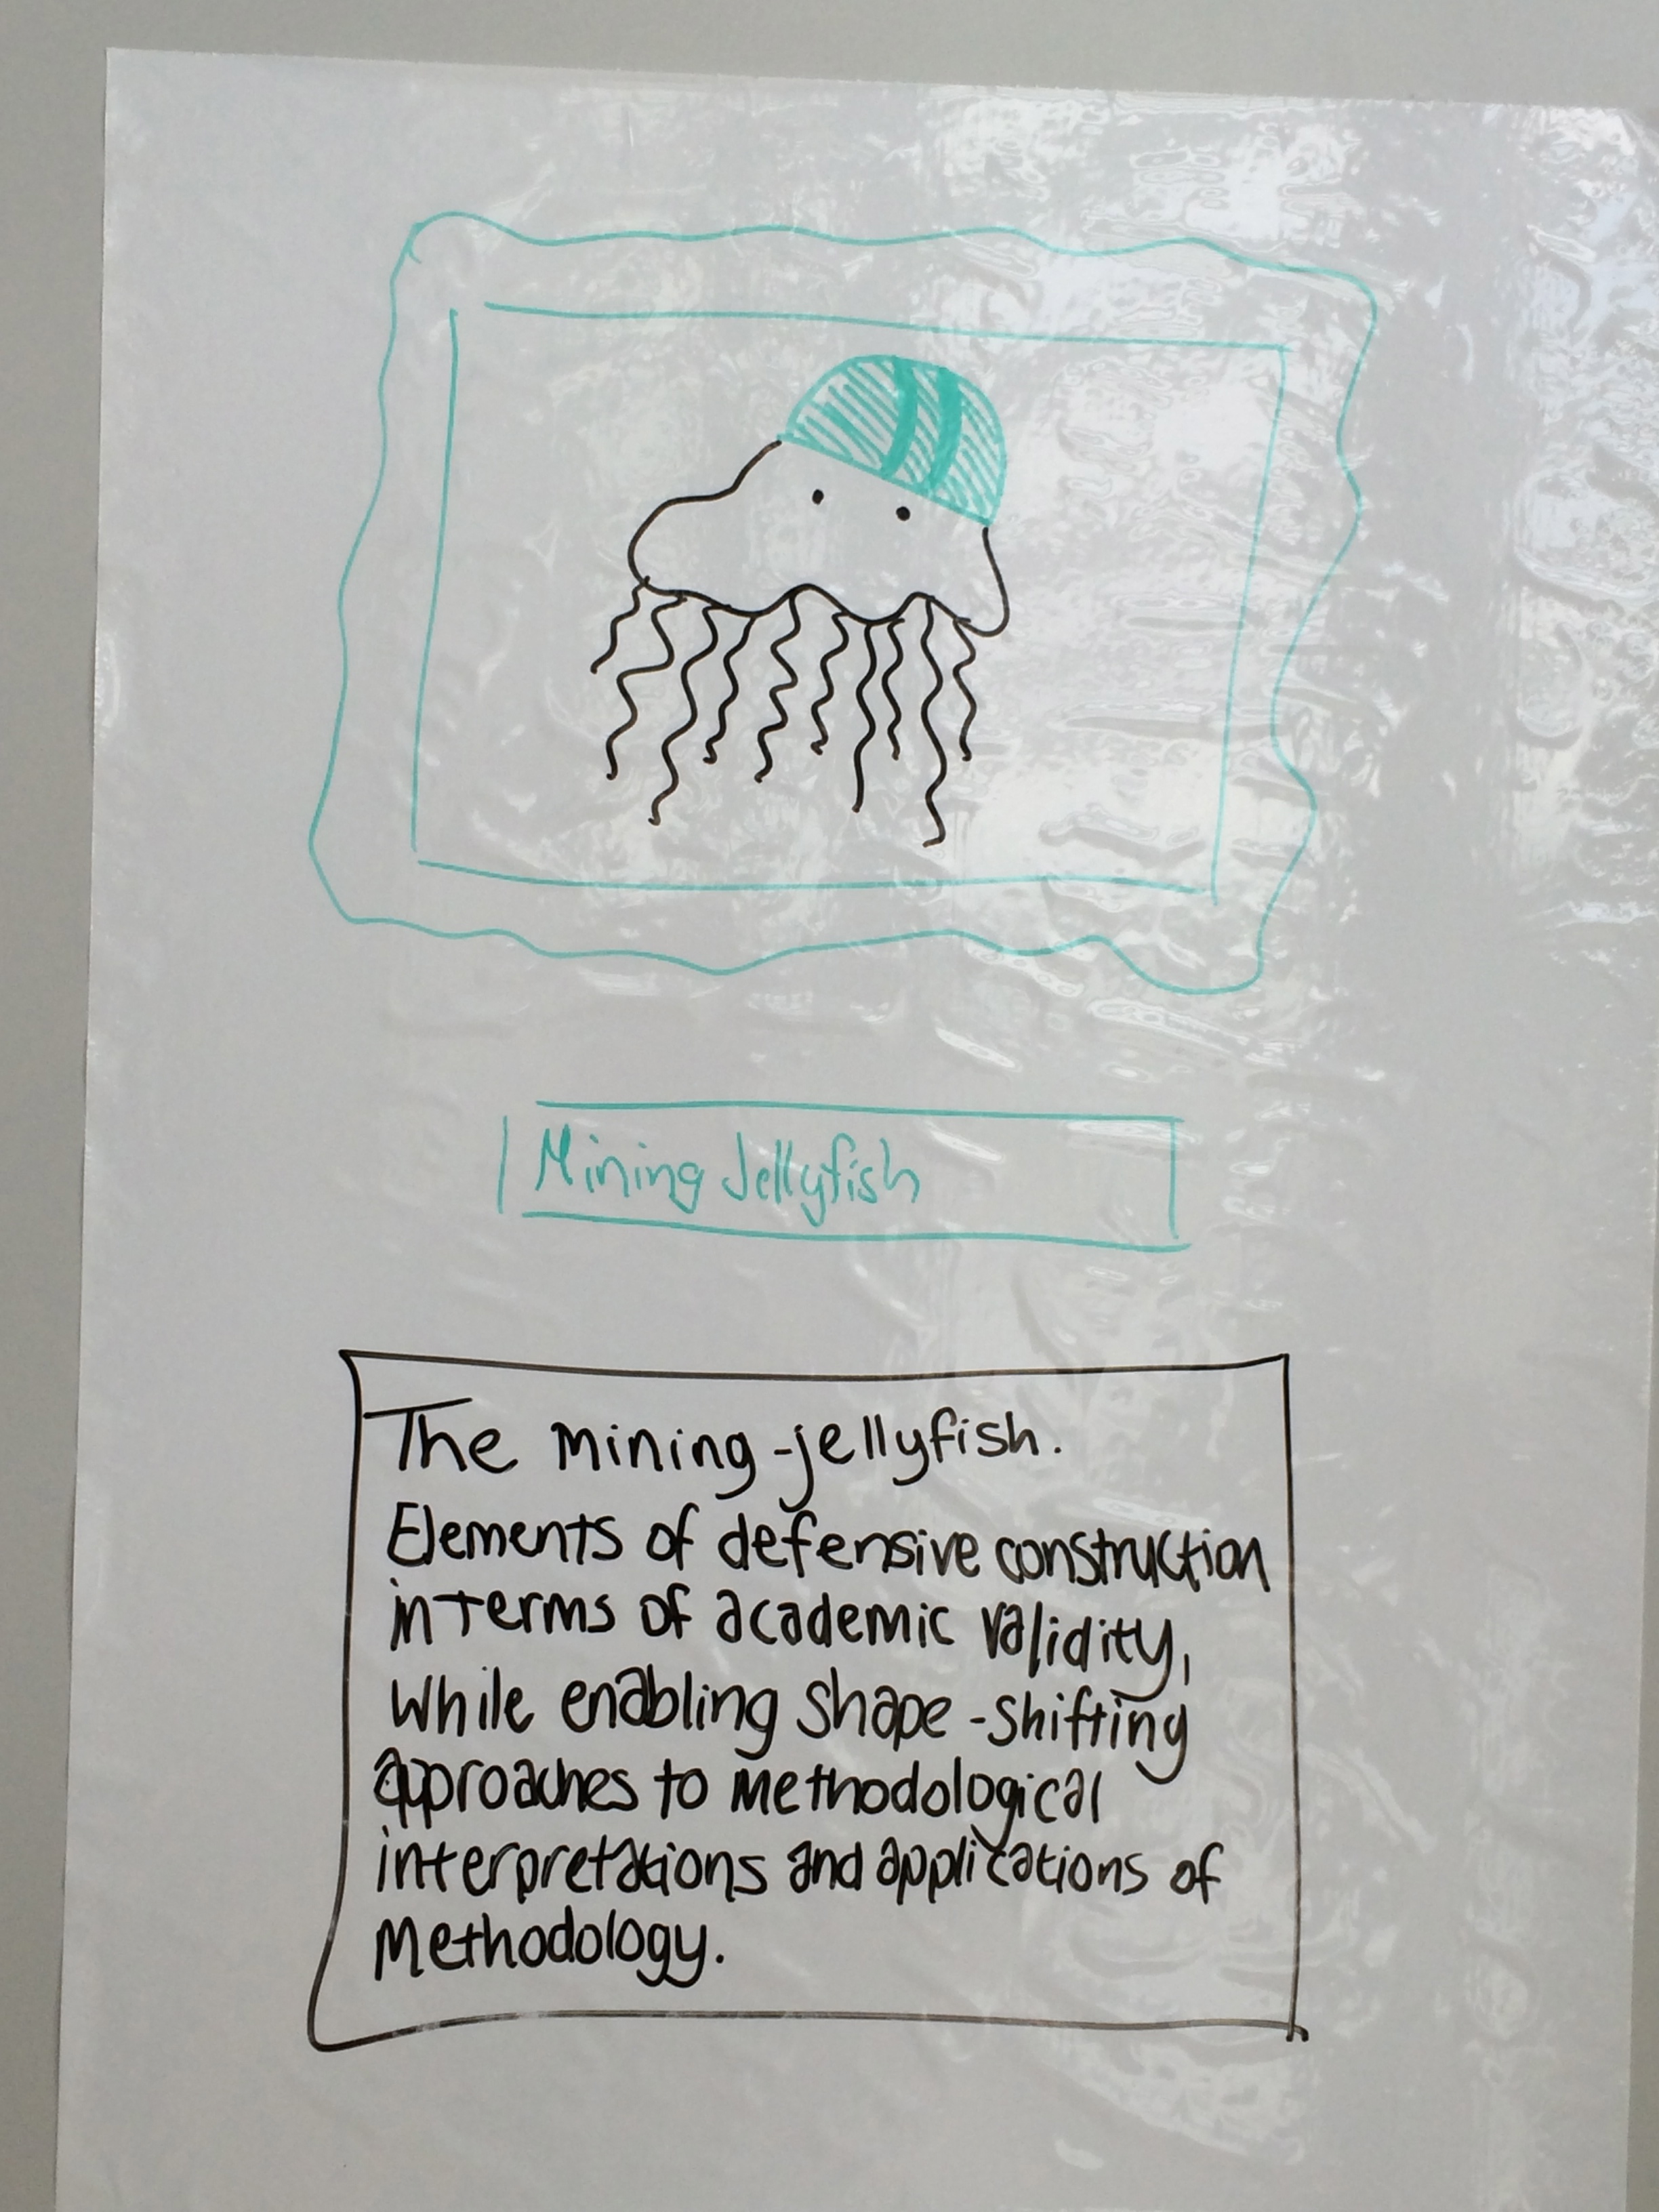 Mining Jellyfish
The mining-jellyfish.
Elements of defensive construction
in terms of academic validity,
while enabling shape-shifting
approaches to methodological
interpretations and applications of
methodology.